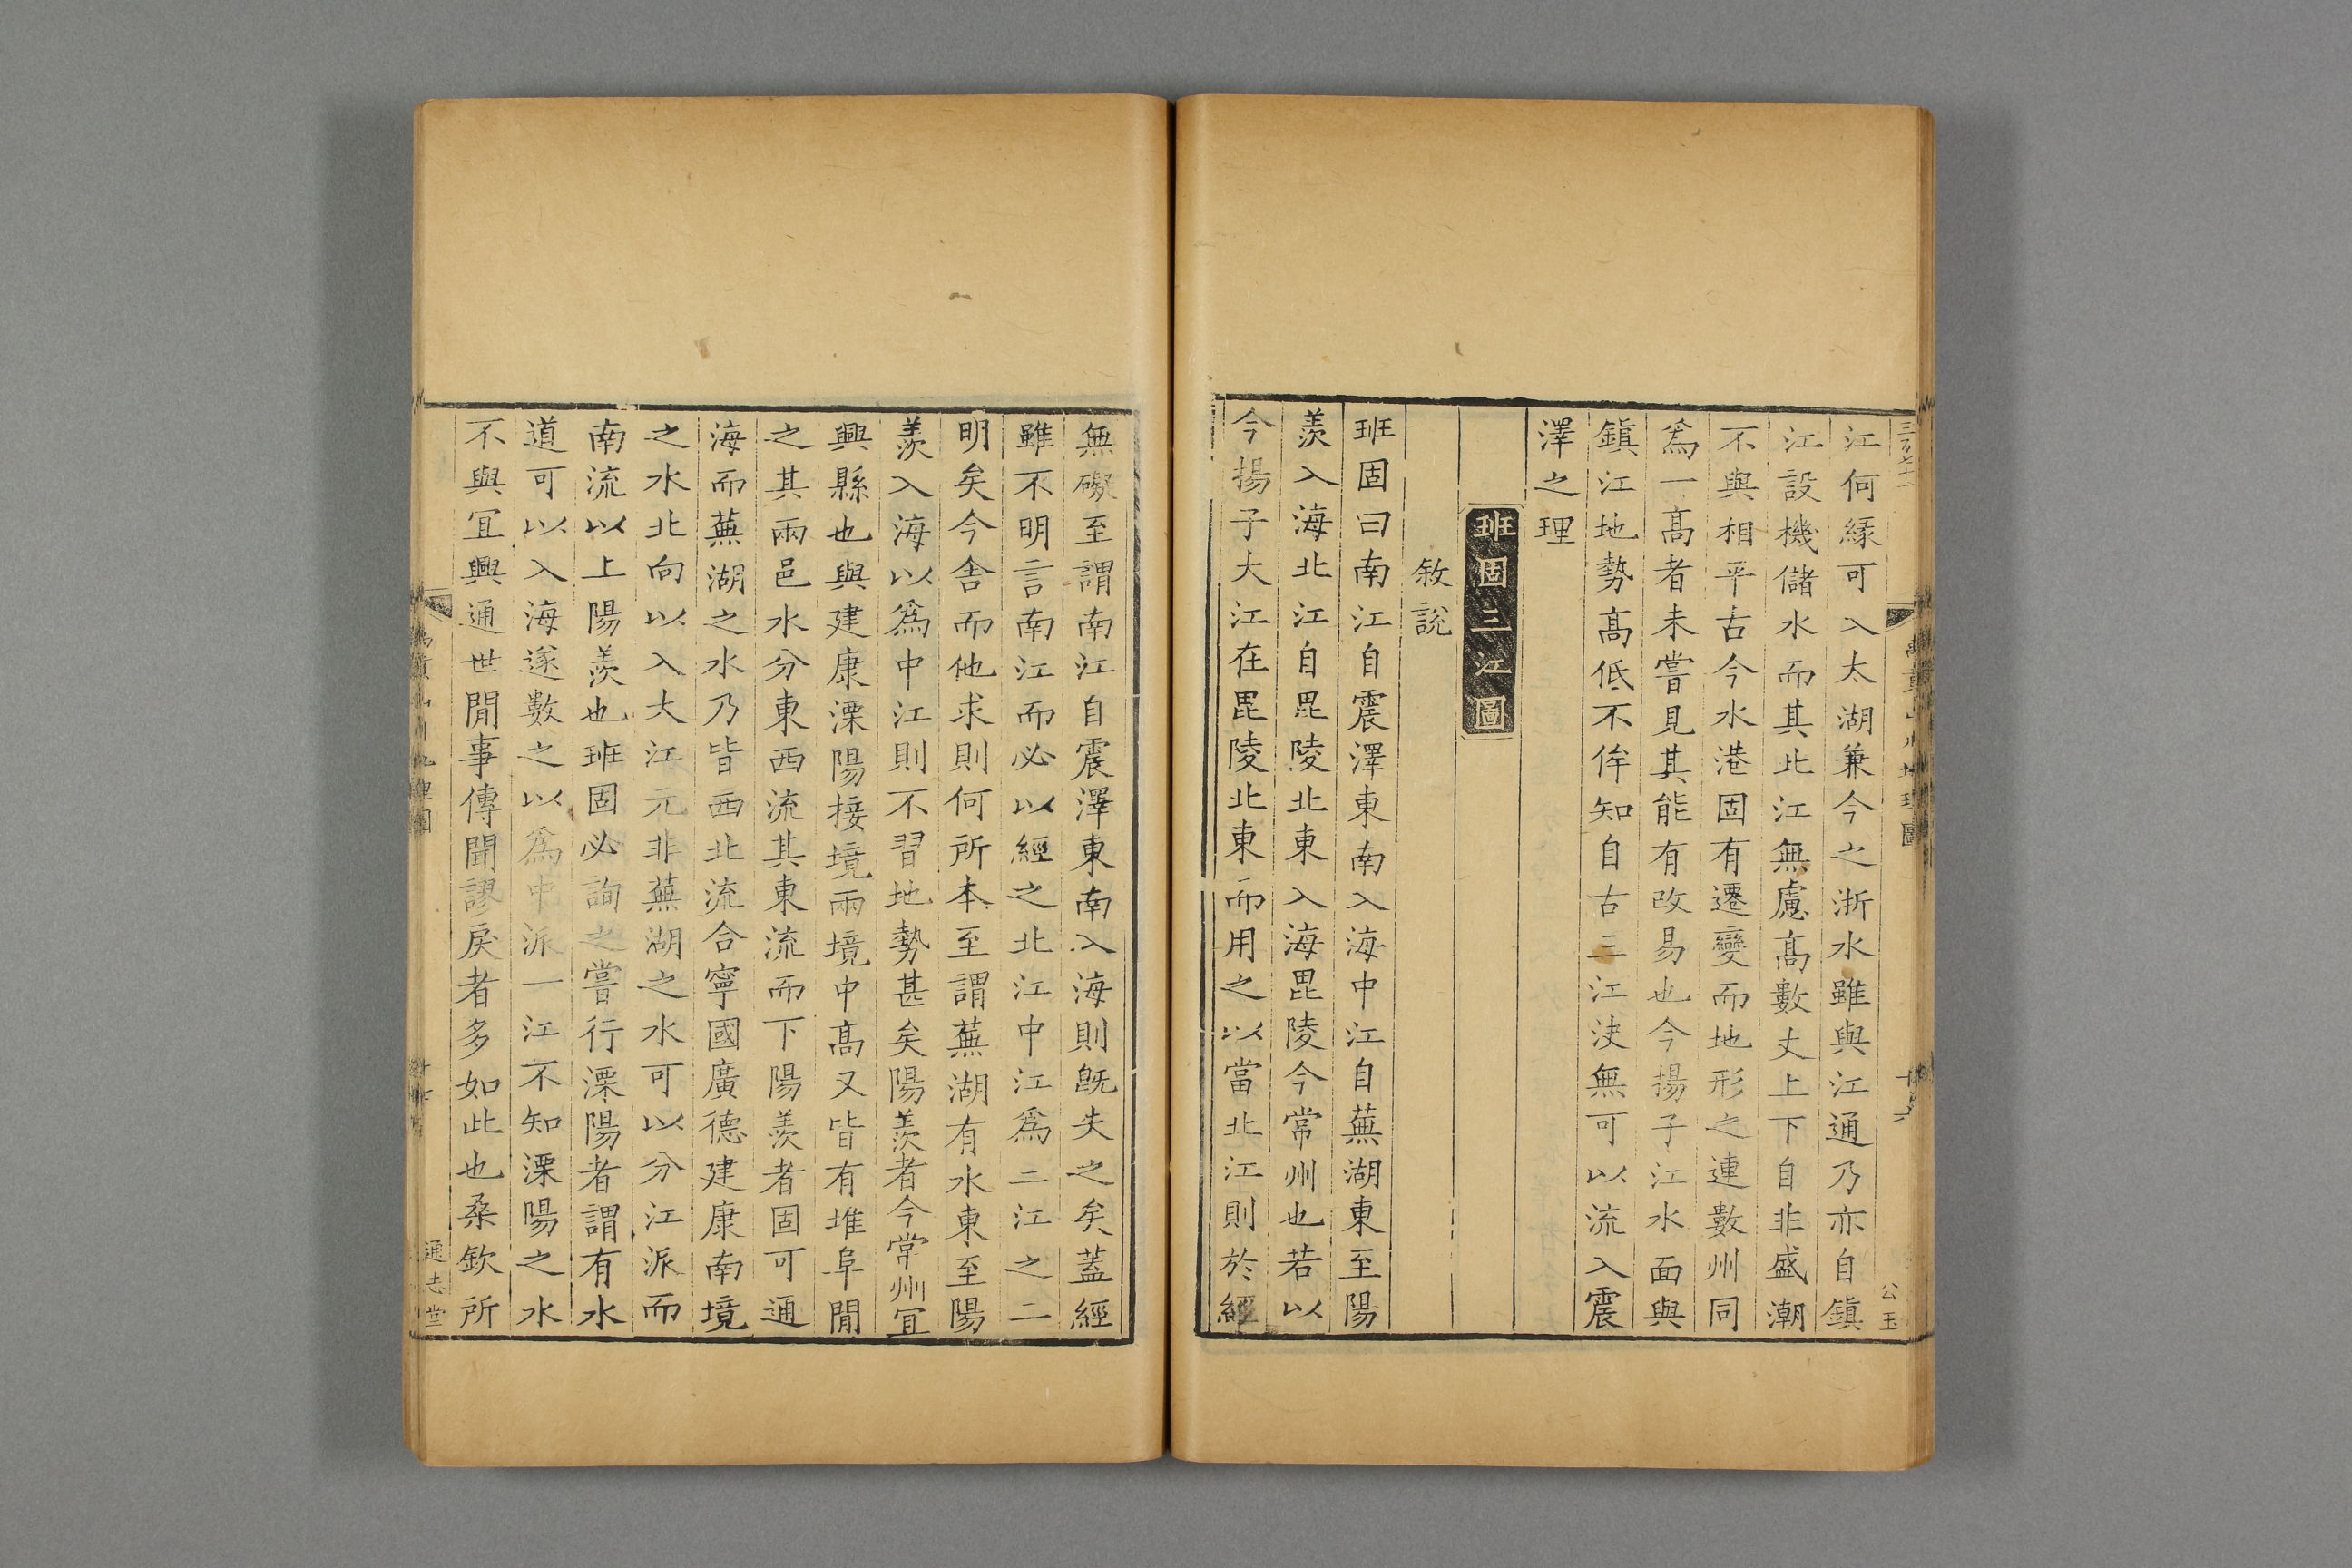 江何緣可入太湖兼今之浙水雖與江通乃亦自鎮
江設機儲水而其北江無慮髙數丈上下自非盛潮
不與相平古今水港固有遷變而地形之連數州同
爲一髙者未嘗見其能有改易也今揚子江水面與
鎮江地勢髙低不侔知自古三江決無可以流入震
澤之理
班固三江圖
敘說
班固曰南江自震澤東南入海中江自蕪湖東至陽
羨入海北江自毘陵北東入海毘陵今常州也若以
今揚子大江在毘陵北東而用之以當北江則於經
公玉
無礙至謂南江自震澤東南入海則旣失之矣蓋經
雖不明言南江而必以經之北江中江爲二江之二
明矣今舍而他求則何所本至謂蕪湖有水東至陽
羨入海以爲中江則不習地勢甚矣陽羨者今常州冝
興縣也與建康溧陽接境兩境中髙又皆有堆阜閒
之其兩邑水分東西流其東流而下陽羨者固可通
海而蕪湖之水乃皆西北流合寧國廣德建康南境
之水北向以入大江元非蕪湖之水可以分江派而
南流以上陽羨也班固必詢之嘗行溧陽者謂有水
道可以入海遂數之以爲中派一江不知溧陽之水
不與冝興通世閒事傳聞謬戾者多如此也桑欽所
通志堂